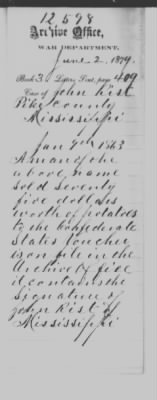 12598
Archive Office,
WAR DEPARTMENT,
June 2, 1879.
Book 3, Letters Sent, page 409
Case of John Kist
Pike County
Mississippi
Jan 9th 1863
A man of the
above, name
sold seventy
five dollars
worth of potatoes
to the Confederate
States voucher
is on file in the
Archive Office
it contains the
signature of
John Kist of
Mississippi